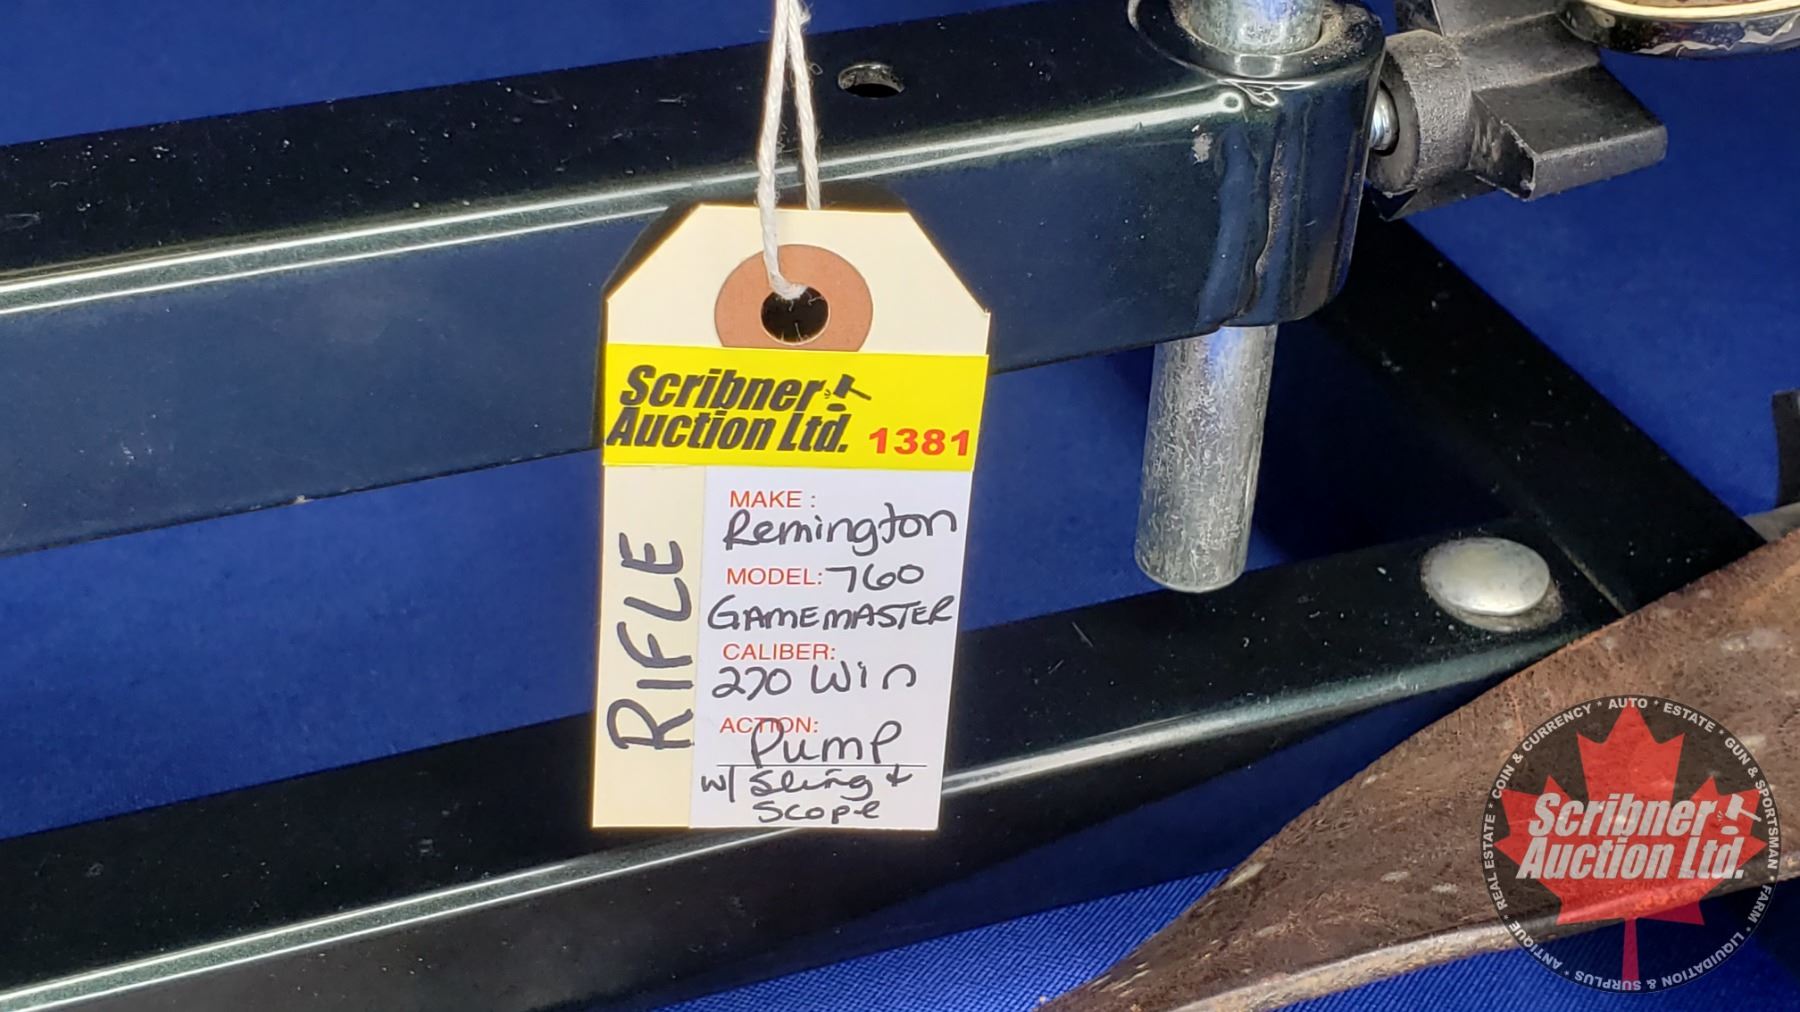 Scribner
Auction Ltd. 1381
RIFLE
MAKE:
Remington
MODEL: 760
GAMEMASTER
CALIBER:
270 Win
ACTION:
Pump
w/ Sling +
Scope
REAL ESTATE * COIN & CURRENCY * AUTO * ESTATE * GUN & SPORTSMAN * FARM * LIQUIDATION & SURPLUS * ANTIQUE *
Scribner
Auction Ltd.